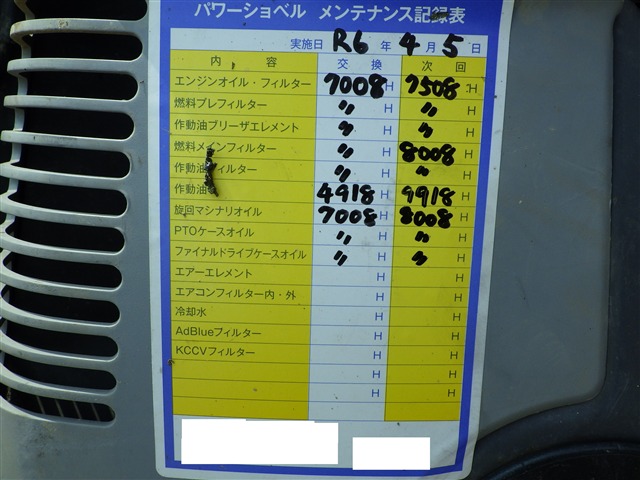 パワーショベル メンテナンス記録表
実施日 R6 年 4 月 5 日
内 容 交 換 次 回
エンジンオイル・フィルター 7008 H 7508 H
燃料プレフィルター 〃 H 〃 H
作動油ブリーザエレメント 〃 H 〃 H
燃料メインフィルター 〃 H 8008 H
作動油フィルター 〃 H 〃 H
作動油 4918 H 9918 H
旋回マシナリオイル 7008 H 8008 H
PTOケースオイル 〃 H 〃 H
ファイナルドライブケースオイル 〃 H 〃 H
エアーエレメント H H
エアコンフィルター内・外 H H
冷却水 H H
AdBlueフィルター H H
KCCVフィルター H H
H H
H H